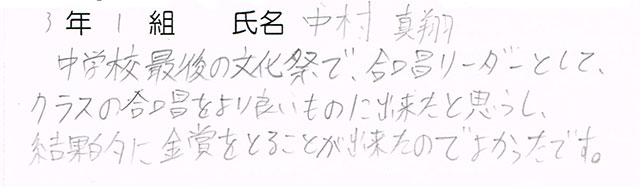 3年 1 組 氏名 中村 真翔
中学校最後の文化祭で、合唱リーダーとして、
クラスの合唱をより良いものに出来たと思うし、
結果的に金賞をとることが出来たのでよかったです。